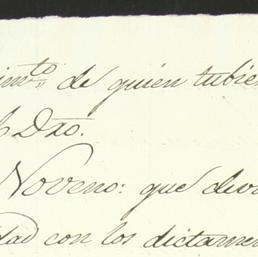 im.to de quien tubie
Dro.
Noveno: que deve
dad con los dictame